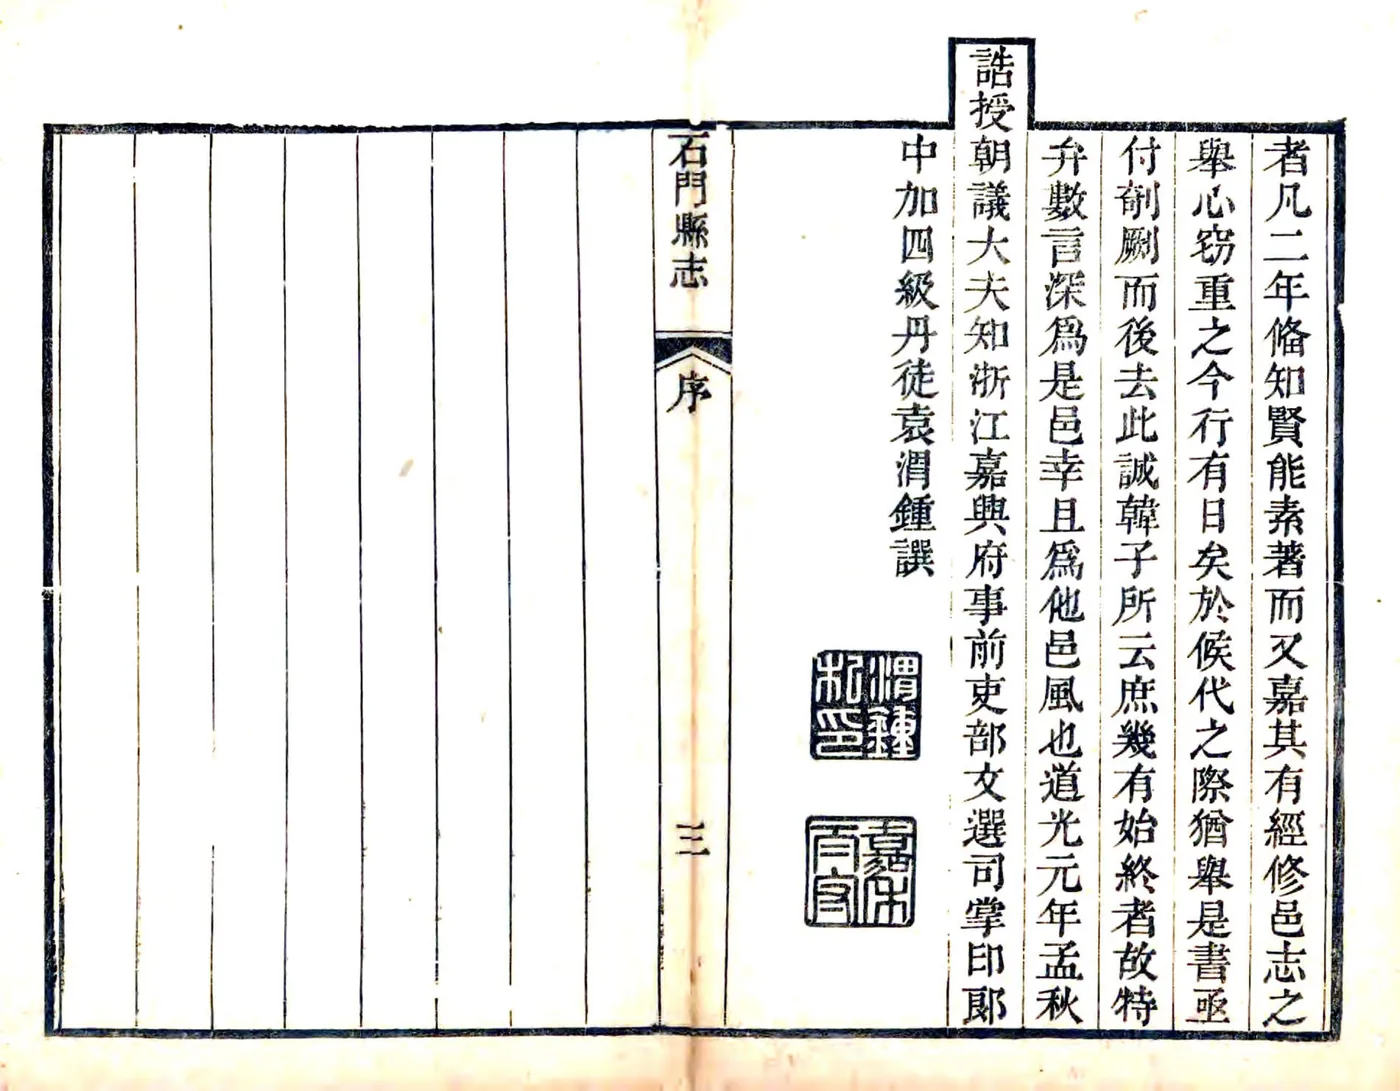 者凡二年偹知賢能素著而又嘉其有經修邑志之
舉心窃重之今行有日矣於候代之際猶舉是書亟
付剞劂而後去此誠韓子所云庶幾有始終者故特
弁數言深爲是邑幸且爲他邑風也道光元年孟秋
誥授朝議大夫知浙江嘉興府事前吏部文選司掌印郞
中加四級丹徒袁渭鍾譔
渭鍾私印
石門縣志
序
三